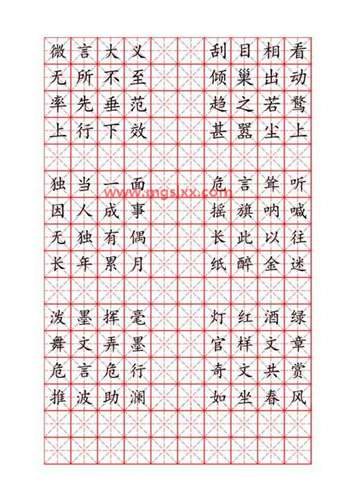 微言大义 刮目相看
无所不至 倾巢出动
率先垂范 趋之若鹜
上行下效 甚嚣尘上
独当一面 危言耸听
www.mgslxx.com
因人成事 摇旗呐喊
无独有偶 长此以往
长年累月 纸醉金迷
泼墨挥毫 灯红酒绿
舞文弄墨 官样文章
危言危行 奇文共赏
推波助澜 如坐春风